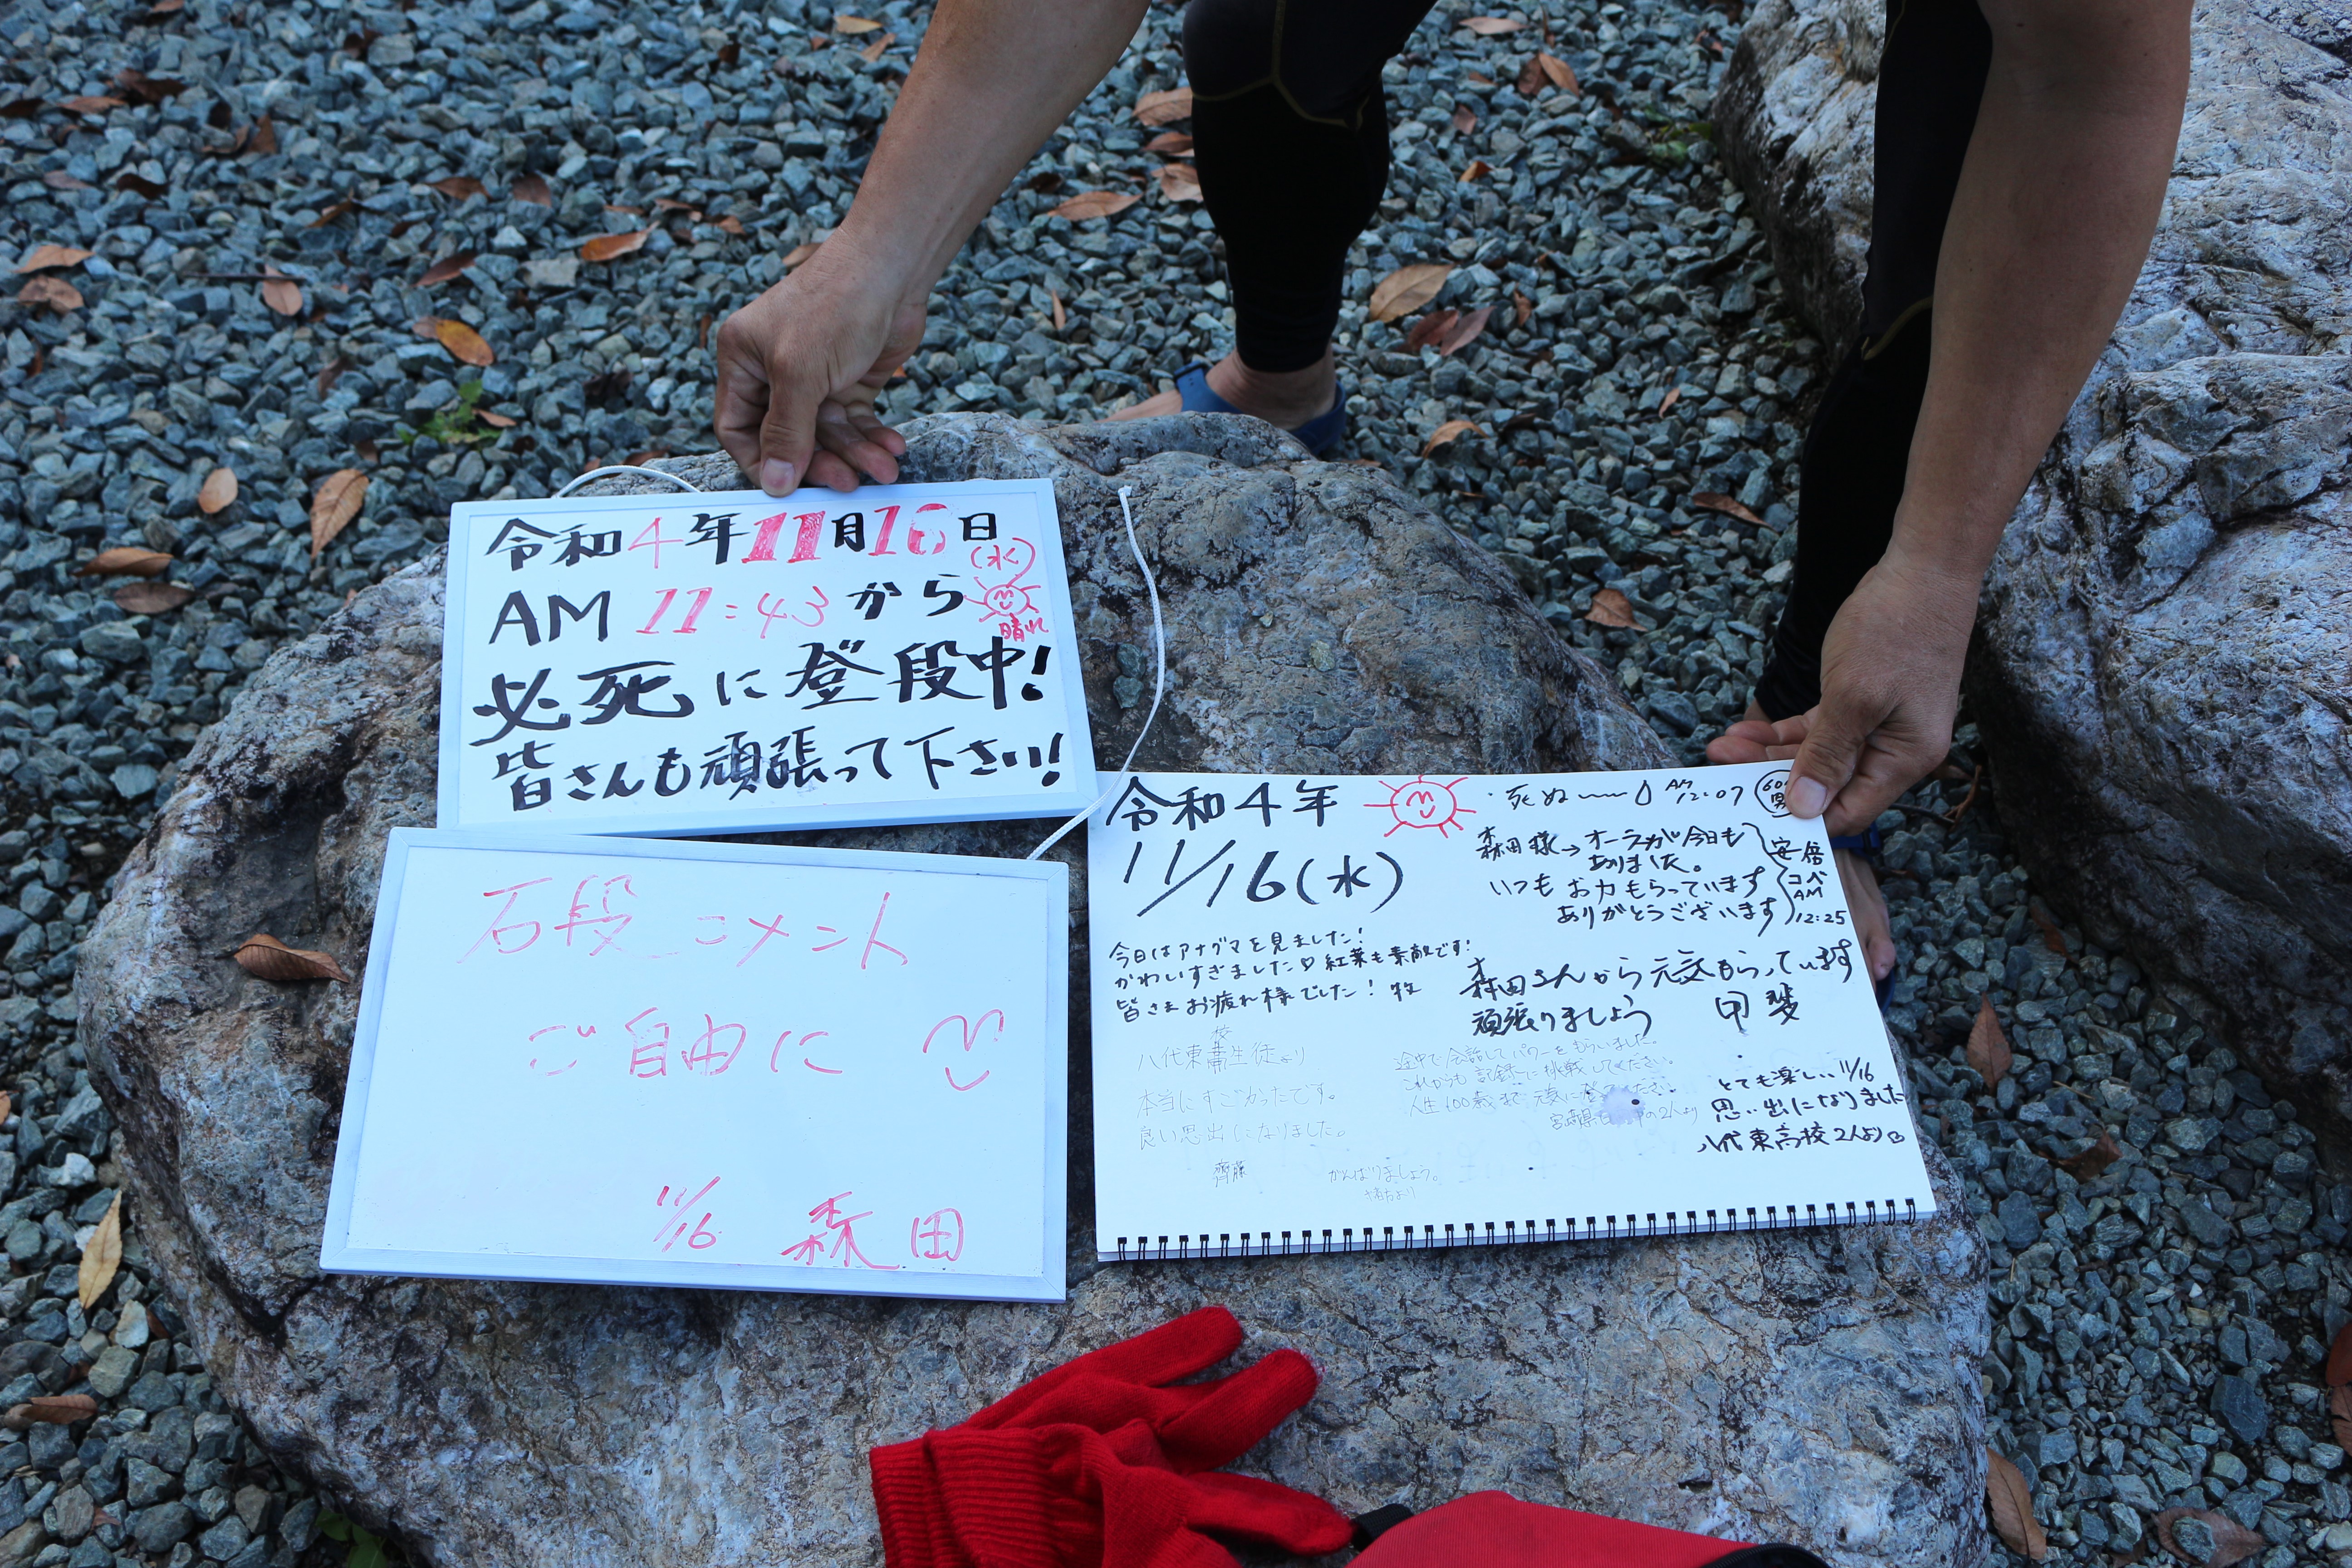 令和4年11月16日
(水)
AM 11:43から
晴れ
必死に登段中!
皆さんも頑張って下さい!
石段コメント
ご自由に
11/16 森田
令和4年
11/16(水)
今日はアナグマを見ました!
かわいすぎました♡紅葉も素敵です!
皆さまお疲れ様でした! 牧
八代東高校生徒より
本当にすごかったです。
良い思出になりました。
齊藤
がんばりましょう。
死ぬ〜〜 AM 12:07
男
森田様→オーラが今日も
ありました。
いつもお力もらっています
ありがとうございます
安倍
コペ
AM
12:25
森田さんから元気もらっています
頑張りましょう 甲斐
途中で会話してパワーをもらいました。
これからも記録に挑戦してください。
人生100歳まで元気に
の2人より
とても楽しい11/16
思い出になりました
八代東高校2人より♡